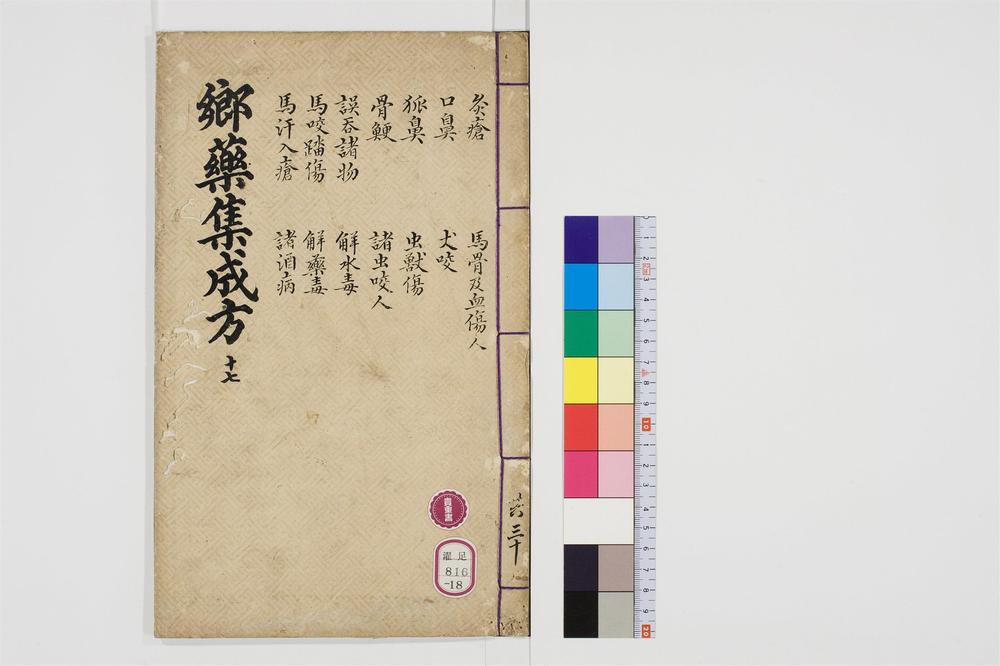 鄉藥集成方 十七
灸瘡 馬骨及血傷人
口鼻 犬咬
狐鼻 虫獸傷
骨鯁 諸虫咬人
誤吞諸物 解水毒
馬咬踏傷 解藥毒
馬汗入瘡 諸酒病
共三十
貴重書
濯足
816
-18